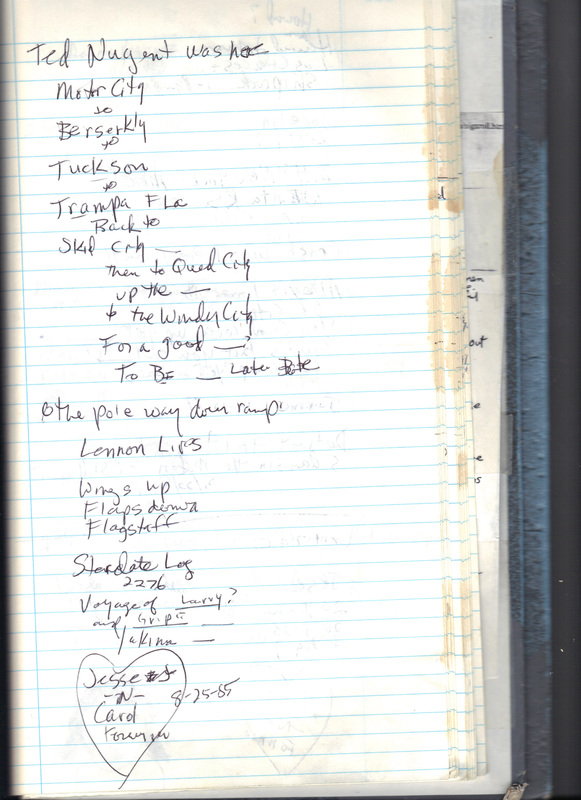 Ted Nugent was here
Motor City
to
Berserkly
to
Tuckson
to
Trampa Fla
Back to
Skid City —
then to Quad City
up the —
to the Windy City
For a good —?
To BE — Later Date
the pole way down ramp
Lennon Lips
Wings up
Flaps down
Flagstaff
Stardate Log
2276
Voyage of Larry?
and —
—
Jesse
-N-
8-25-85
Carol
Forever
d
out
e
e
s